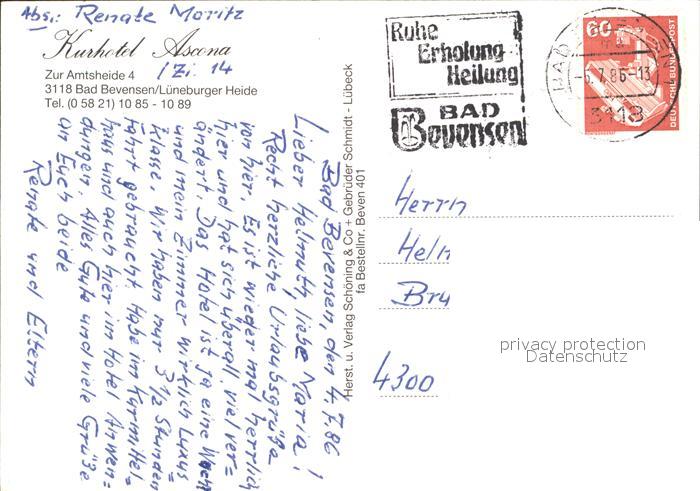 Abs.: Renate Moritz
Kurhotel Ascona
/Zi. 14
Zur Amtsheide 4
3118 Bad Bevensen/Lüneburger Heide
Tel. (0 58 21) 10 85 - 10 89
Bad Bevensen, den 4.7.86
Lieber Helmuth, liebe Maria!
Recht herzliche Urlaubsgrüße
von hier. Es ist wieder mal herrlich
hier und hat sich überall viel ver=
ändert. Das Hotel ist ja eine Wucht
und mein Zimmer wirklich Luxus
klasse. Wir haben nur 3 1/2 Stunden
Fahrt gebraucht. Habe im Kurmittel=
haus und auch hier im Hotel Anwen=
dungen. Alles Gute und viele Grüße
an Euch beide
Renate und Eltern
Herst. u. Verlag Schöning & Co + Gebrüder Schmidt - Lübeck
fa Bestellnr. Beven 401
Ruhe
Erholung
Heilung
BAD
Bevensen
60
DEUTSCHE BUNDESPOST
BAD
-5.7.86-13
3118
Herrn
Heln
Bru
4300
privacy protection
Datenschutz